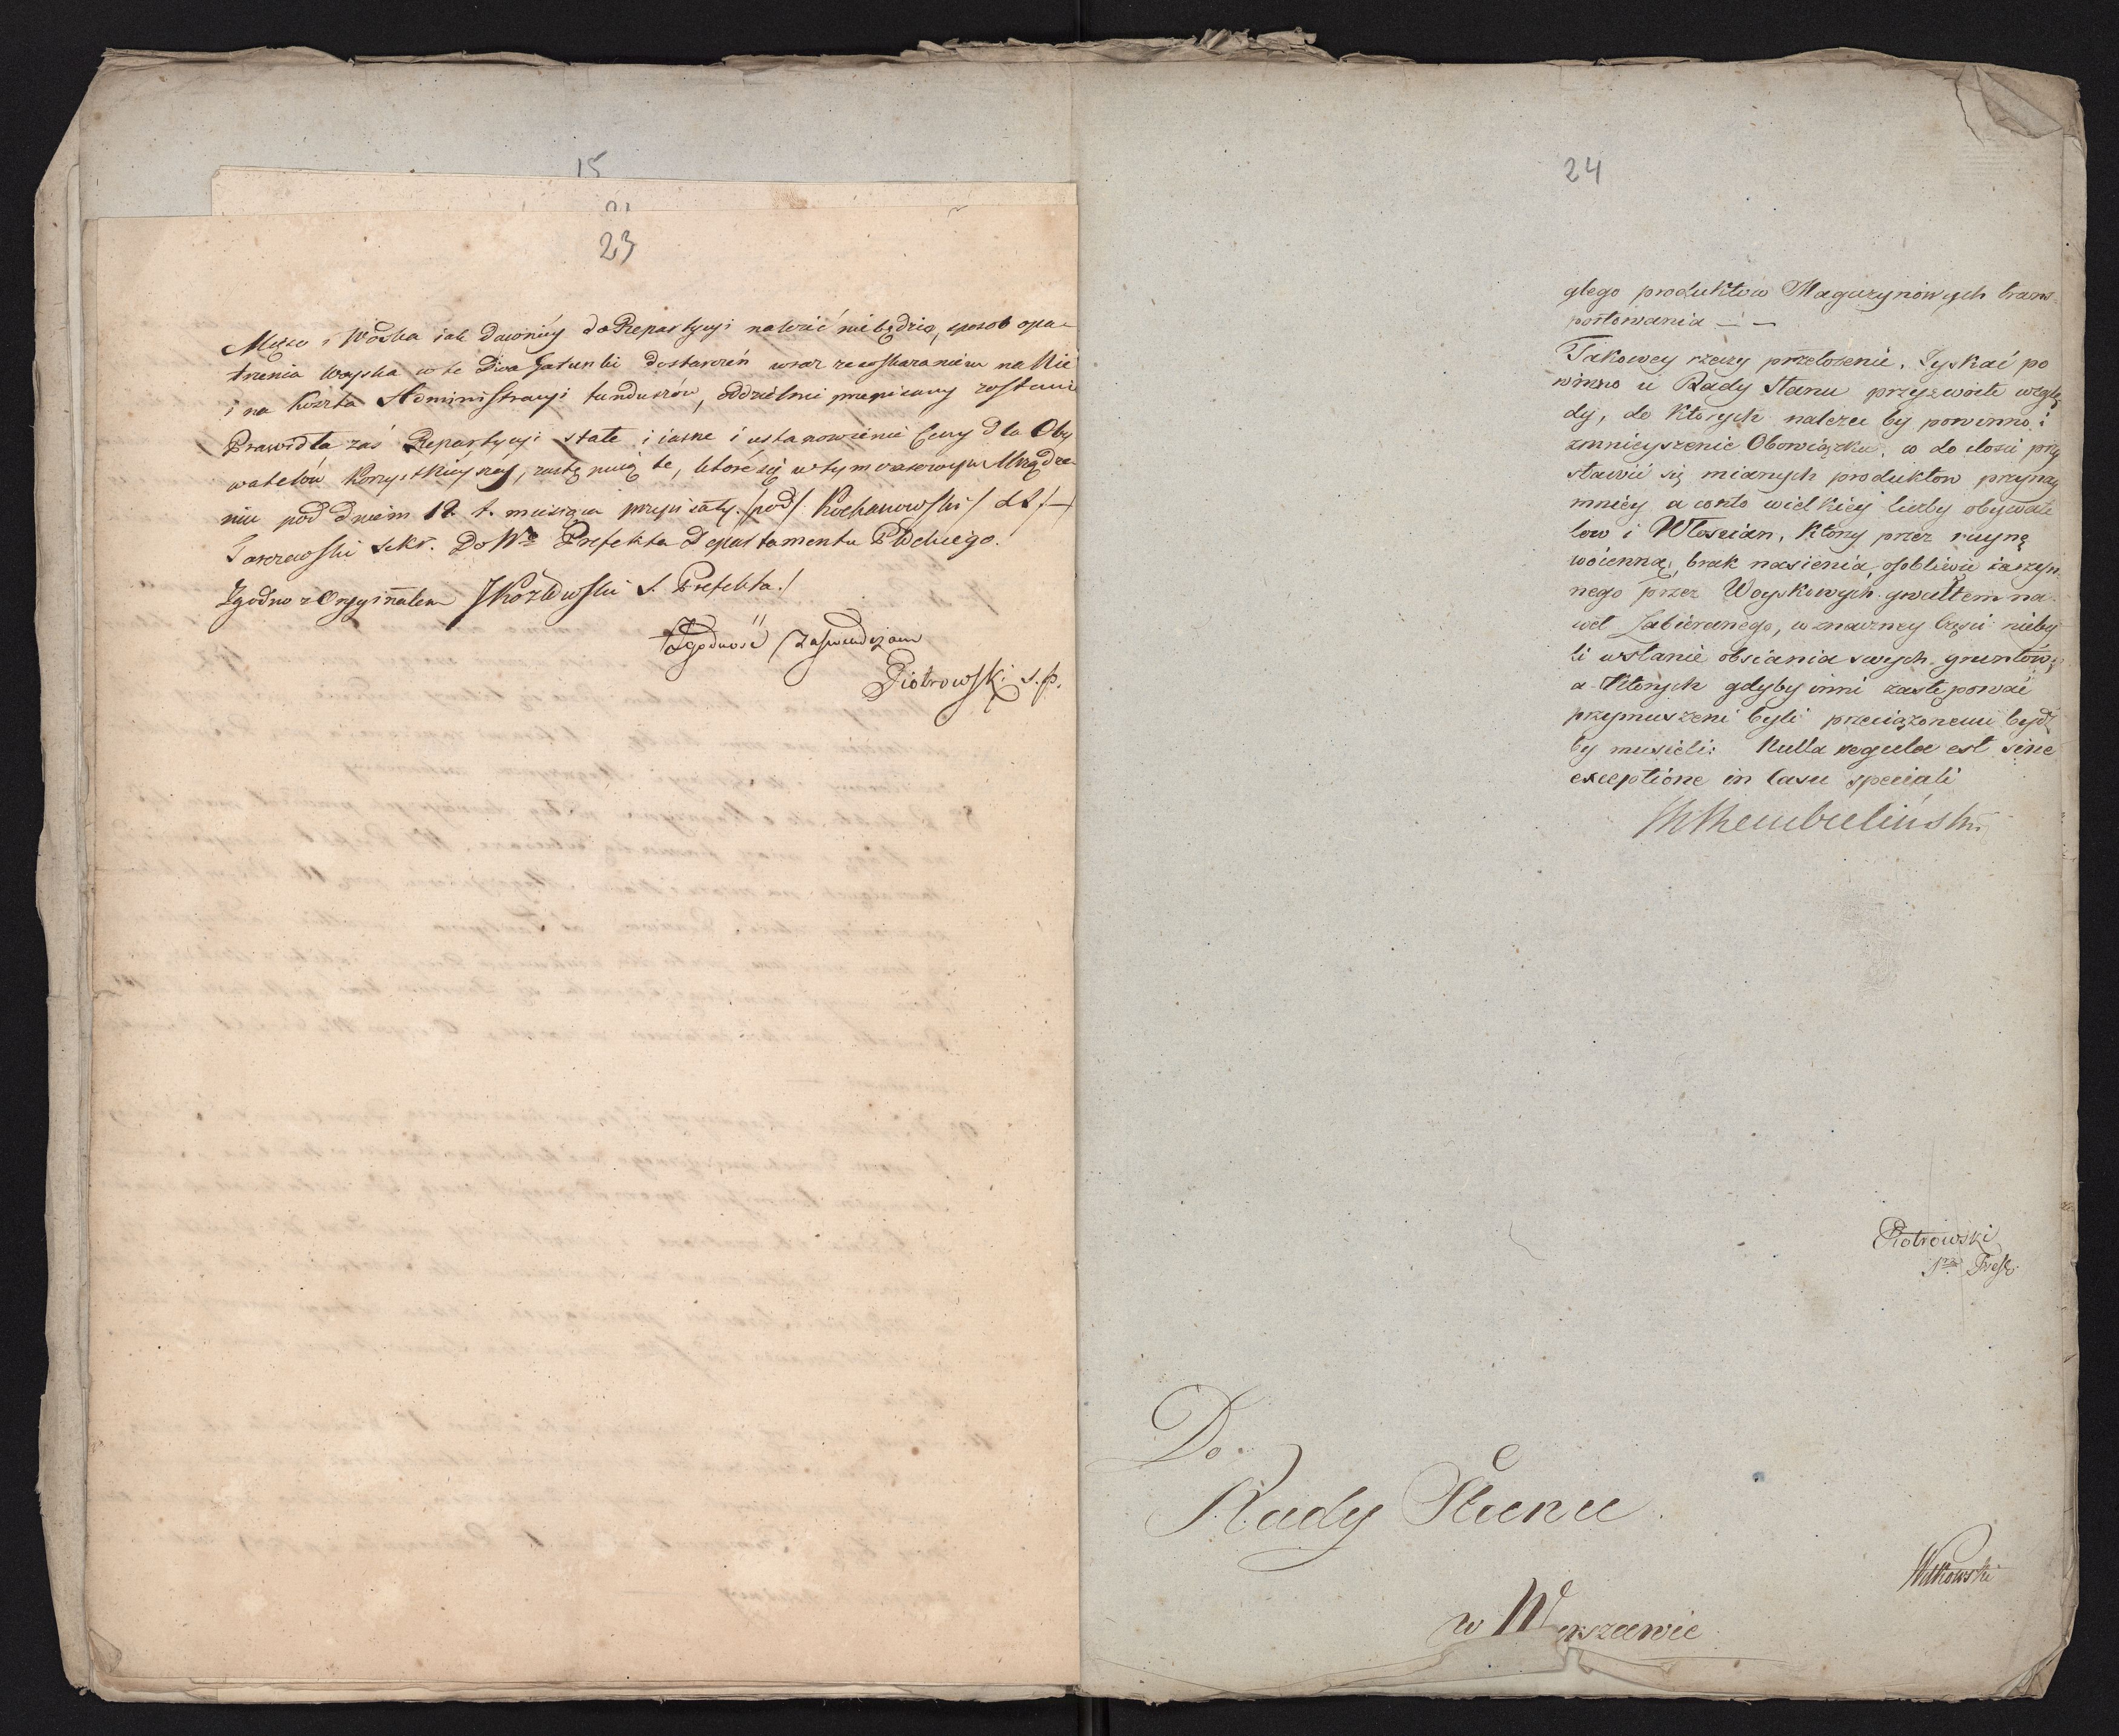 15
23
Mięso i Wódka iak dawniey do Repartycyi należeć niebędzie, sposob opa-
trzenia woyska w te Dwa Gatunki dostarczeń wraz ze wskazaniem na Nie
i na koszta Administracyi funduszów, oddzielnie przepisany zostanie
Prawidła zaś Repartycyi stałe i iasne i ustanowienie Ceny dla Oby
watelów korzystnieyszey, zastąpią te, które się w tymczasowym Urządze-
niu pod dniem 12. t. miesiąca przepisały. /pod/ Kochanowski /
Jarzewski Sekr. Do Wo Prefekta Departamentu Płockiego.
Zgodno z Oryginałem JKozłowski S. Prefekta./
Zgodność Zaświadczam
Piotrowski s. p.
24
głego produktow Magazynowych trans-
portowania — —
Takowey rzeczy przełożenie, Zyskać po
winno u Rady Stanu przyzwoite wzglę
dy, do których należeć by powinno i
zmnieyszenie Obowiązku, w do ilosci przy
stawić się mianych produktow przynay
mniey a conto wielkiey liczby obywate
low i Włoscian, Ktorzy przez ruynę
woienną, brak nasienia, osobliwie iarzyn-
nego przez Woyskowych gwałtem na-
wet Zabieranego, w znaczney części nieby
li w stanie obsiania swych gruntow,
a Ktorych gdyby inni zastępować
przymuszeni byli przeciążonemi bydź
by musieli: Nulla regula est sine
exceptione in Casu speciali
Rembielinski
Piotrowski
Do.
Rady Stanu
Witkowski
w Warszawie